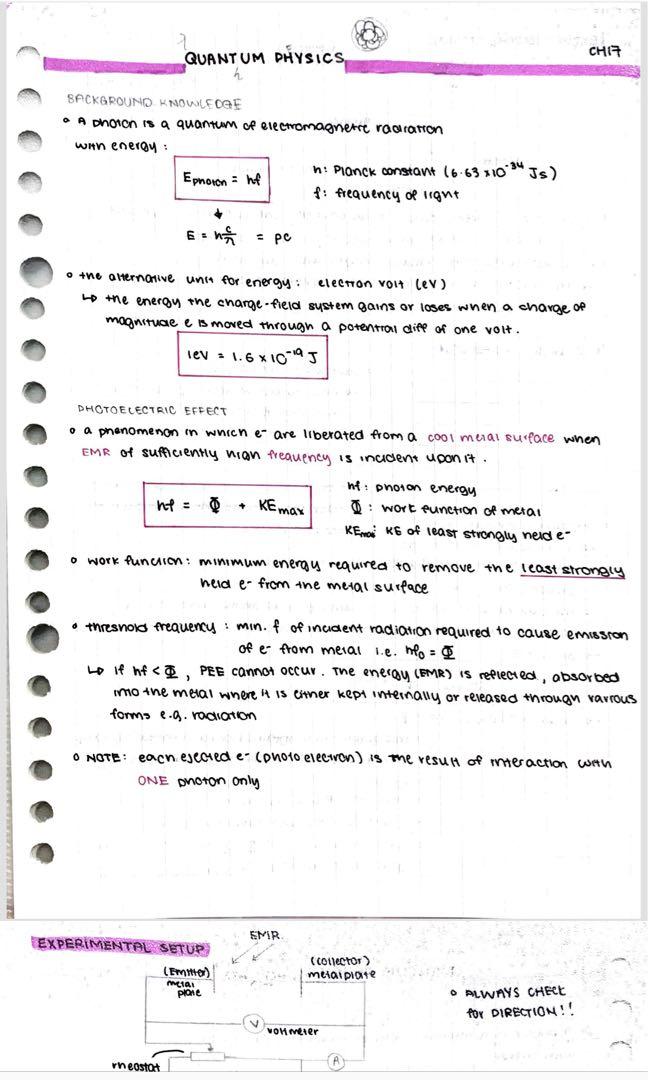 CH17
QUANTUM PHYSICS
BACKGROUND KNOWLEDGE
• A photon is a quantum of electromagnetic radiation
with energy :
E photon = hf
h: Planck constant (6.63 x 10⁻³⁴ Js)
f: frequency of light
↓
E = h c/λ = pc
• the alternative unit for energy : electron volt (eV)
↳ the energy the charge-field system gains or loses when a charge of
magnitude e is moved through a potential diff of one volt.
1eV = 1.6 x 10⁻¹⁹ J
PHOTOELECTRIC EFFECT
• a phenomenon in which e⁻ are liberated from a cool metal surface when
EMR of sufficiently high frequency is incident upon it.
hf = Φ + KEmax
hf: photon energy
Φ : work function of metal
KEmax: KE of least strongly held e⁻
• work function: minimum energy required to remove the least strongly
held e⁻ from the metal surface
• threshold frequency : min. f of incident radiation required to cause emission
of e⁻ from metal i.e. hf₀ = Φ
↳ if hf < Φ, PEE cannot occur. The energy (EMR) is reflected, absorbed
into the metal where it is either kept internally or released through various
forms e.g. radiation
• NOTE: each ejected e⁻ (photo electron) is the result of interaction with
ONE photon only
EXPERIMENTAL SETUP
EMR
(Emitter)
metal
plate
(collector)
metal plate
V voltmeter
rheostat
A
• ALWAYS CHECK
for DIRECTION!!